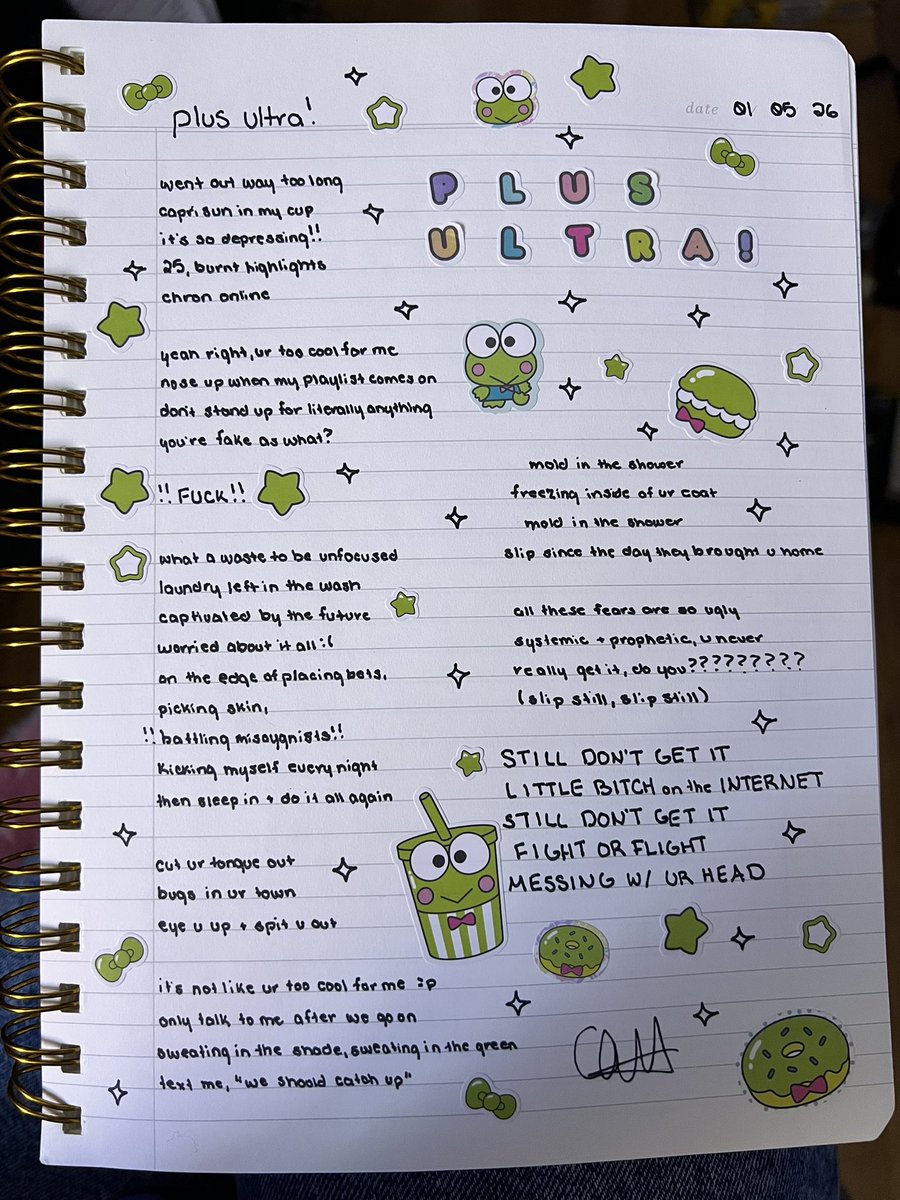 plus ultra!
date 01 05 26
PLUS
ULTRA!
went out way too long
capri sun in my cup
it's so depressing!!
25, burnt highlights
chron online
yeah right, ur too cool for me
nose up when my playlist comes on
don't stand up for literally anything
you're fake as what?
!! FUCK!!
what a waste to be unfocused
laundry left in the wash
captivated by the future
worried about it all :(
on the edge of placing bets,
picking skin,
!! battling misoygnists!!
kicking myself every night
then sleep in + do it all again
cut ur tongue out
bugs in ur town
eye u up + spit u out
it's not like ur too cool for me :p
only talk to me after we go on
sweating in the shade, sweating in the green
text me, "we should catch up"
mold in the shower
freezing inside of ur coat
mold in the shower
slip since the day they brought u home
all these fears are so ugly
systemic + prophetic, u never
really get it, do you?????????
(slip still, slip still)
STILL DON'T GET IT
LITTLE BITCH on the INTERNET
STILL DON'T GET IT
FIGHT OR FLIGHT
MESSING W/ UR HEAD